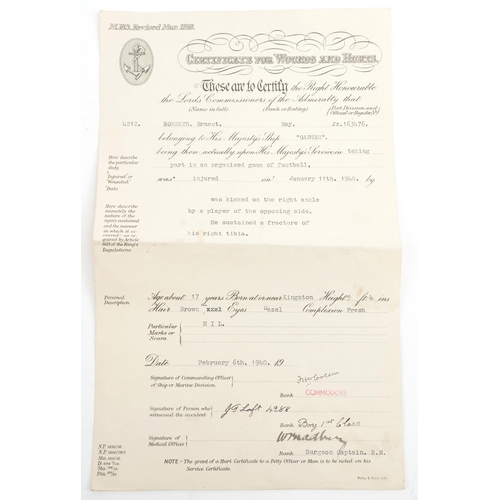 CERTIFICATE FOR WOUNDS AND HURTS.
These are to Certify the Right Honourable
the Lords Commissioners of the Admiralty that
(Name in full) (Rank or Rating) (Port Division and Official or Register No.)
4812. ROBERTS. Ernest. Boy. Jx.163476.
belonging to His Majesty's Ship "GANGES"
being then actually upon His Majesty's Service in taking
Here describe the particular duty.
part in an organised game of football.
"Injured or Wounded."
Date
was injured on January 11th. 1940. by
Here describe minutely the nature of the injury sustained and the manner in which it occurred
was kicked on the right ankle
by a player of the opposing side.
He sustained a fracture of
his right tibia.
Personal Description.
Age about 17 years Born at or near Kingston Height 5 ft 4 ins
Hair Brown Eyes Hazel Complexion Fresh
Particular Marks or Scars. NIL.
Date February 6th. 1940. 19
Signature of Commanding Officer of Ship or Marine Division.
Rank COMMODORE
Signature of Person who witnessed the accident JG Loft 4288
Rank Boy 1st Class
Signature of Medical Officer
Rank Surgeon Captain. R.N.
NOTE - The grant of a Hurt Certificate to a Petty Officer or Man is to be noted on his Service Certificate.